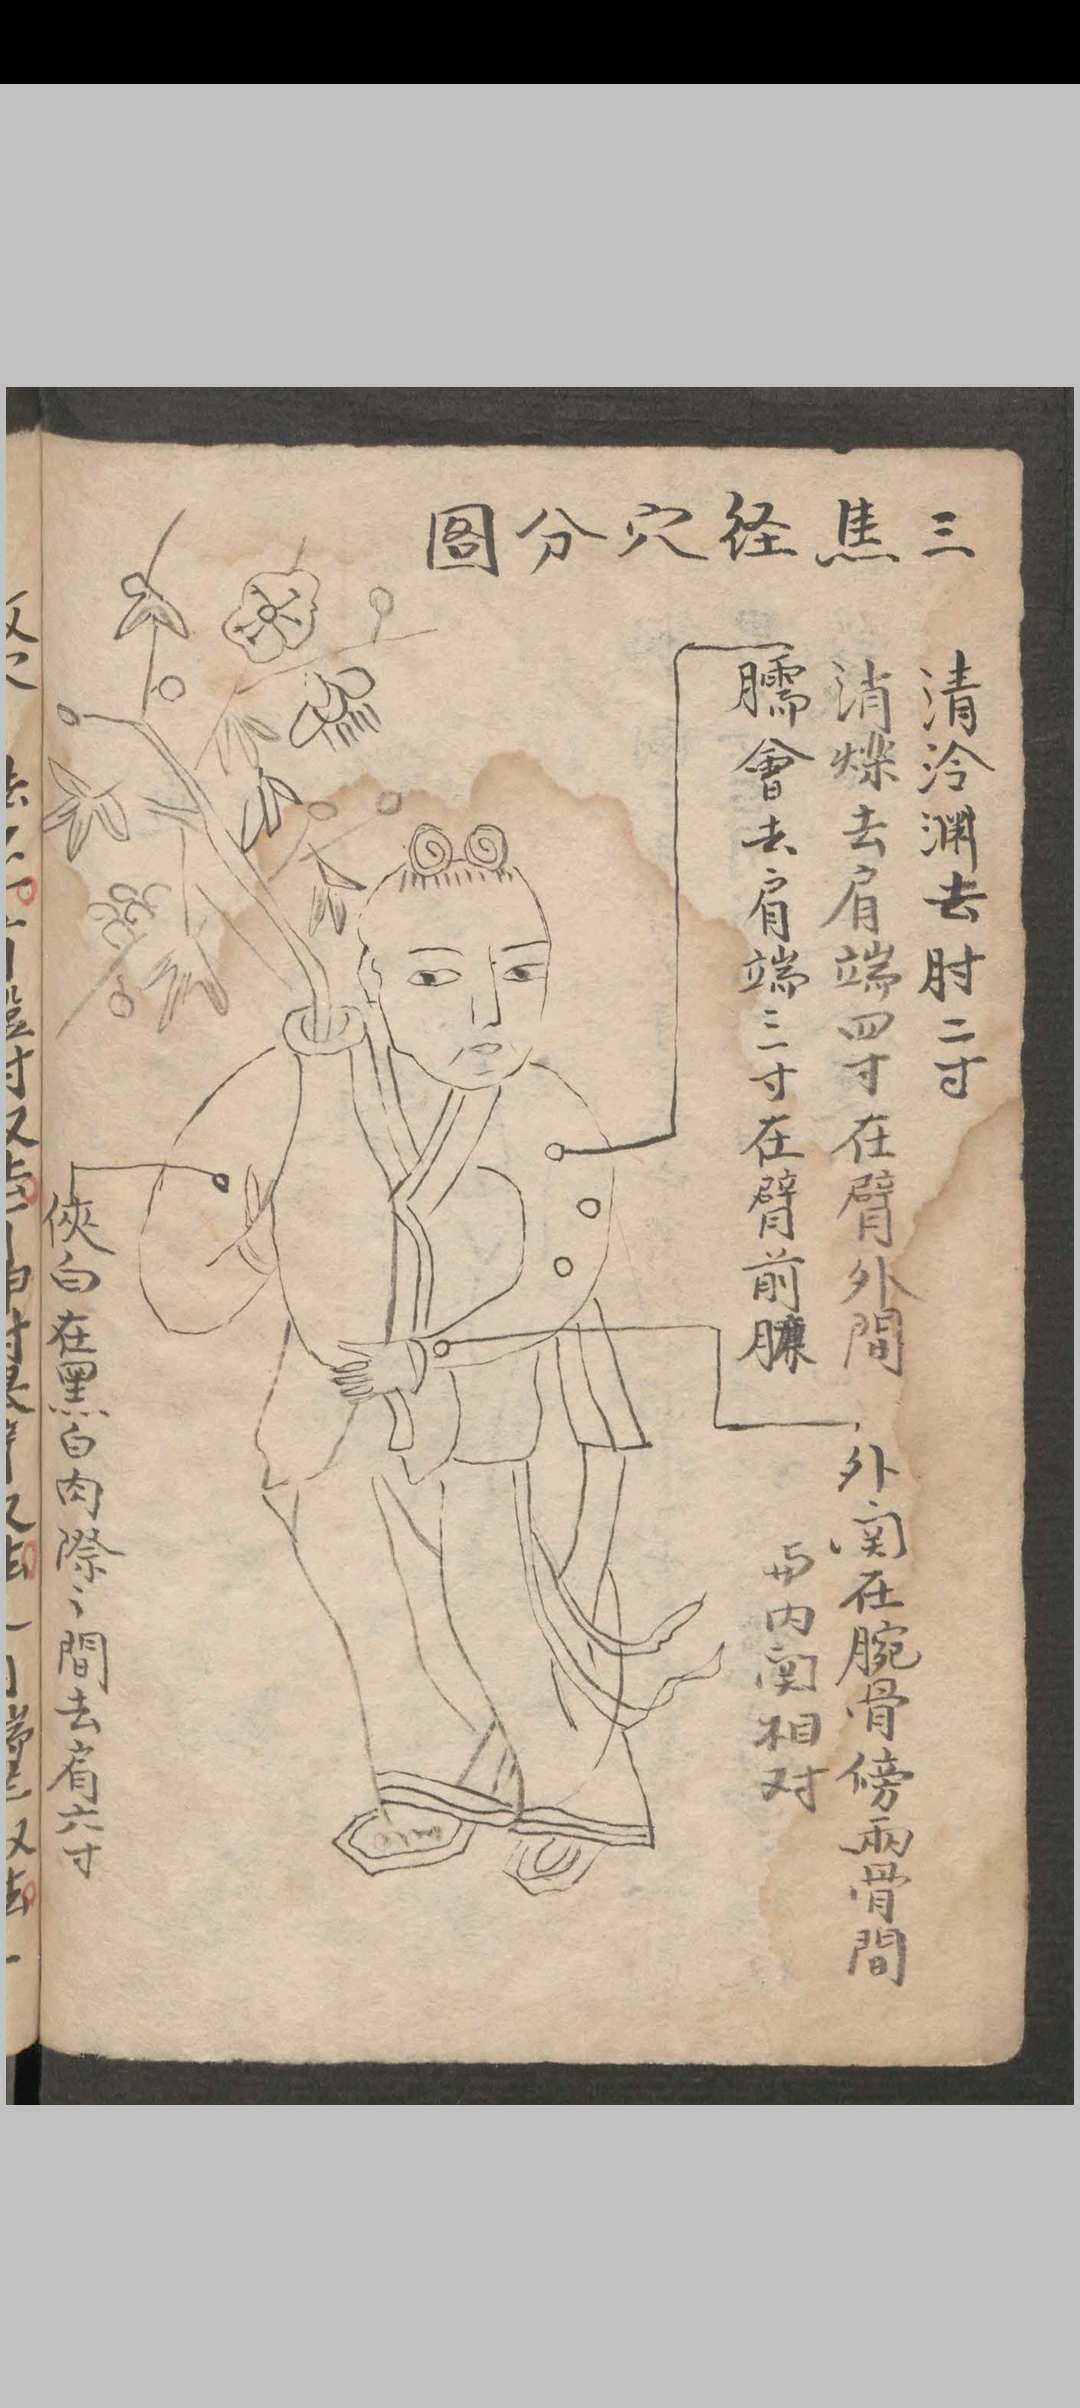 三焦経穴分圖
清泠渊去肘二寸
消爍去肩端四寸在臂外間
臑會去肩端三寸在臂前臁
外関在腕骨傍兩骨間
与内関相对
俠白在黑白肉際〻間去肩六寸